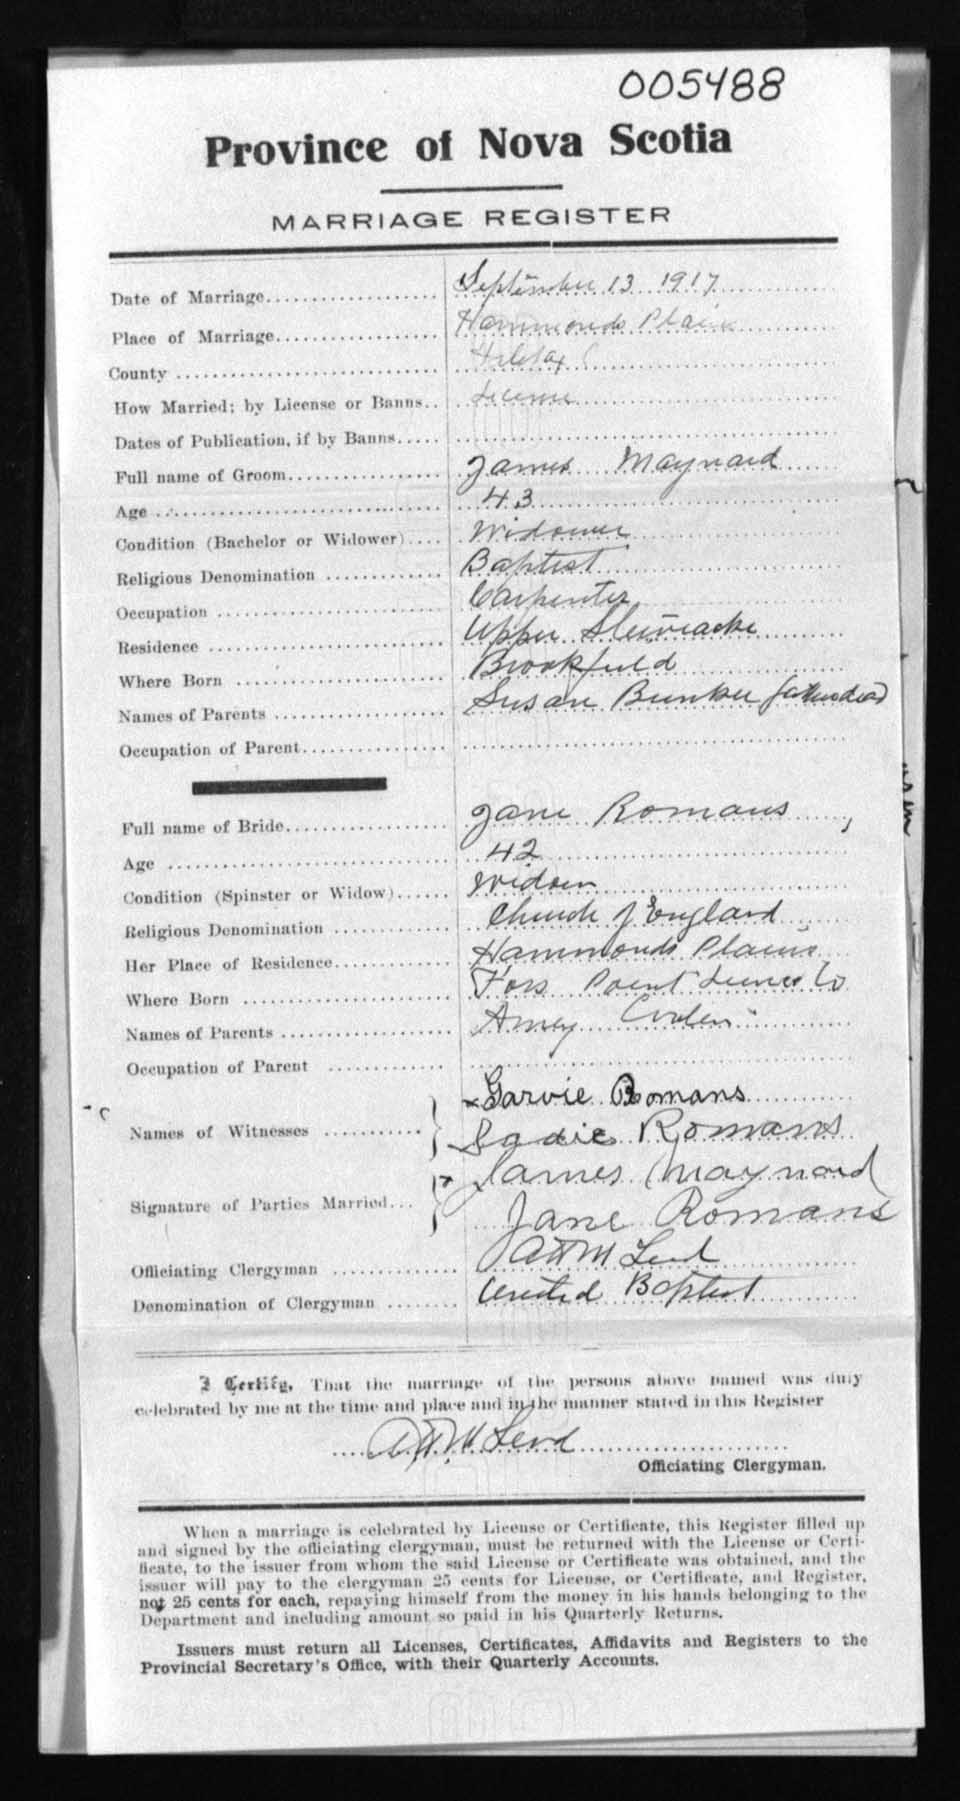 005488
Province of Nova Scotia
MARRIAGE REGISTER
Date of Marriage September 13 1917
Place of Marriage Hammonds Plain
County Halifax
How Married; by License or Banns License
Dates of Publication, if by Banns
Full name of Groom James Maynard
Age 43
Condition (Bachelor or Widower) Widower
Religious Denomination Baptist
Occupation Carpenter
Residence Upper Stewiacke
Where Born Brookfield
Names of Parents Susan Bunker father dead
Occupation of Parent
Full name of Bride Jane Romans
Age 42
Condition (Spinster or Widow) Widow
Religious Denomination Church of England
Her Place of Residence Hammonds Plains
Where Born Point Co
Names of Parents Amey
Occupation of Parent
Names of Witnesses Garvie Romans
Sadie Romans
Signature of Parties Married James Maynard
Jane Romans
Officiating Clergyman
Denomination of Clergyman United Baptist
I Certify, That the marriage of the persons above named was duly
celebrated by me at the time and place and in the manner stated in this Register
Officiating Clergyman.
When a marriage is celebrated by License or Certificate, this Register filled up
and signed by the officiating clergyman, must be returned with the License or Certi-
ficate, to the issuer from whom the said License or Certificate was obtained, and the
issuer will pay to the clergyman 25 cents for License, or Certificate, and Register,
not 25 cents for each, repaying himself from the money in his hands belonging to the
Department and including amount so paid in his Quarterly Returns.
Issuers must return all Licenses, Certificates, Affidavits and Registers to the
Provincial Secretary's Office, with their Quarterly Accounts.